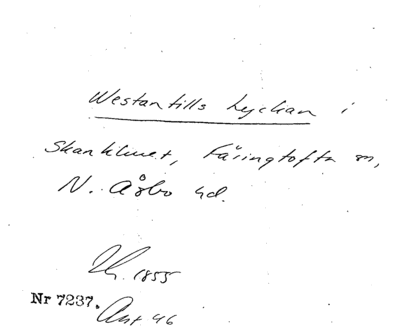 Westantills Lyckan i
Skanklunet, Färingtofta sn,
N. Åsbo hd.
1855
Nr 7237.
Ant 46